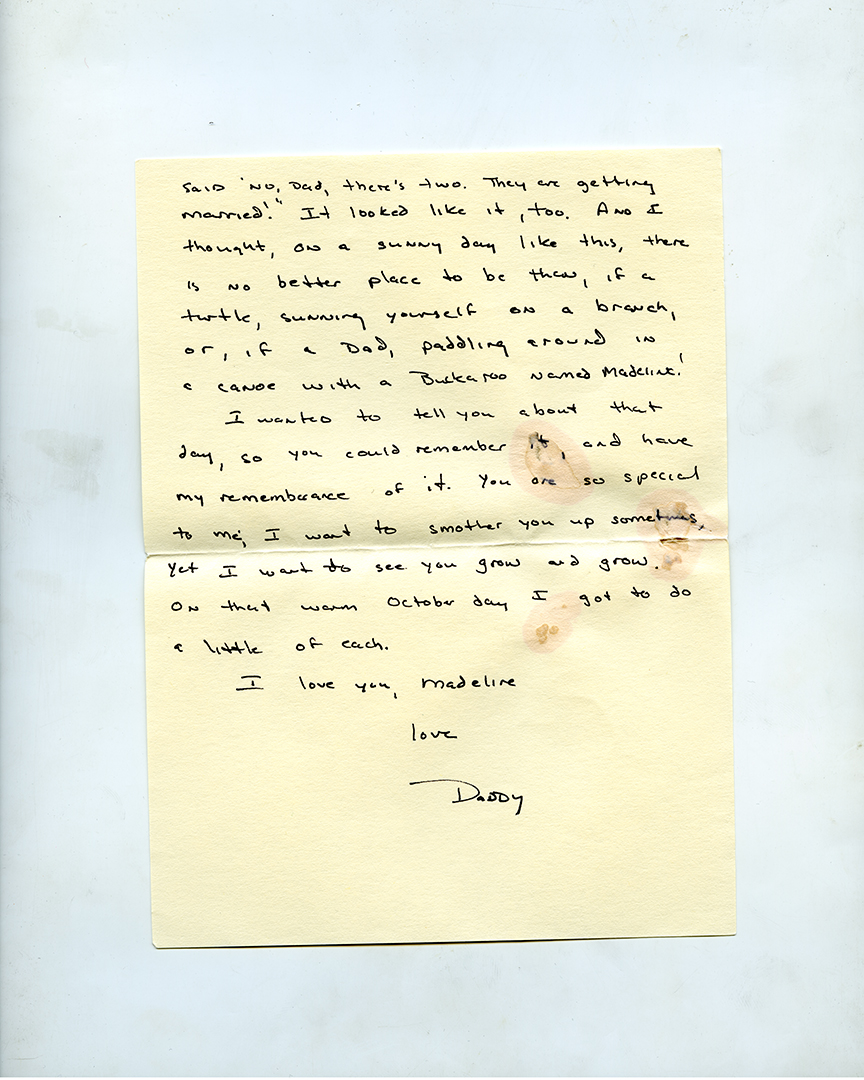 said "No, Dad, there's two. They are getting
married!" It looked like it, too. And I
thought, on a sunny day like this, there
is no better place to be than, if a
turtle, sunning yourself on a branch,
or, if a Dad, paddling around in
a canoe with a Buckaroo named Madeline!
I wanted to tell you about that
day, so you could remember it, and have
my rememberance of it. You are so special
to me; I want to smother you up sometimes,
yet I want to see you grow and grow.
On that warm October day I got to do
a little of each.
I love you, Madeline
love
Daddy